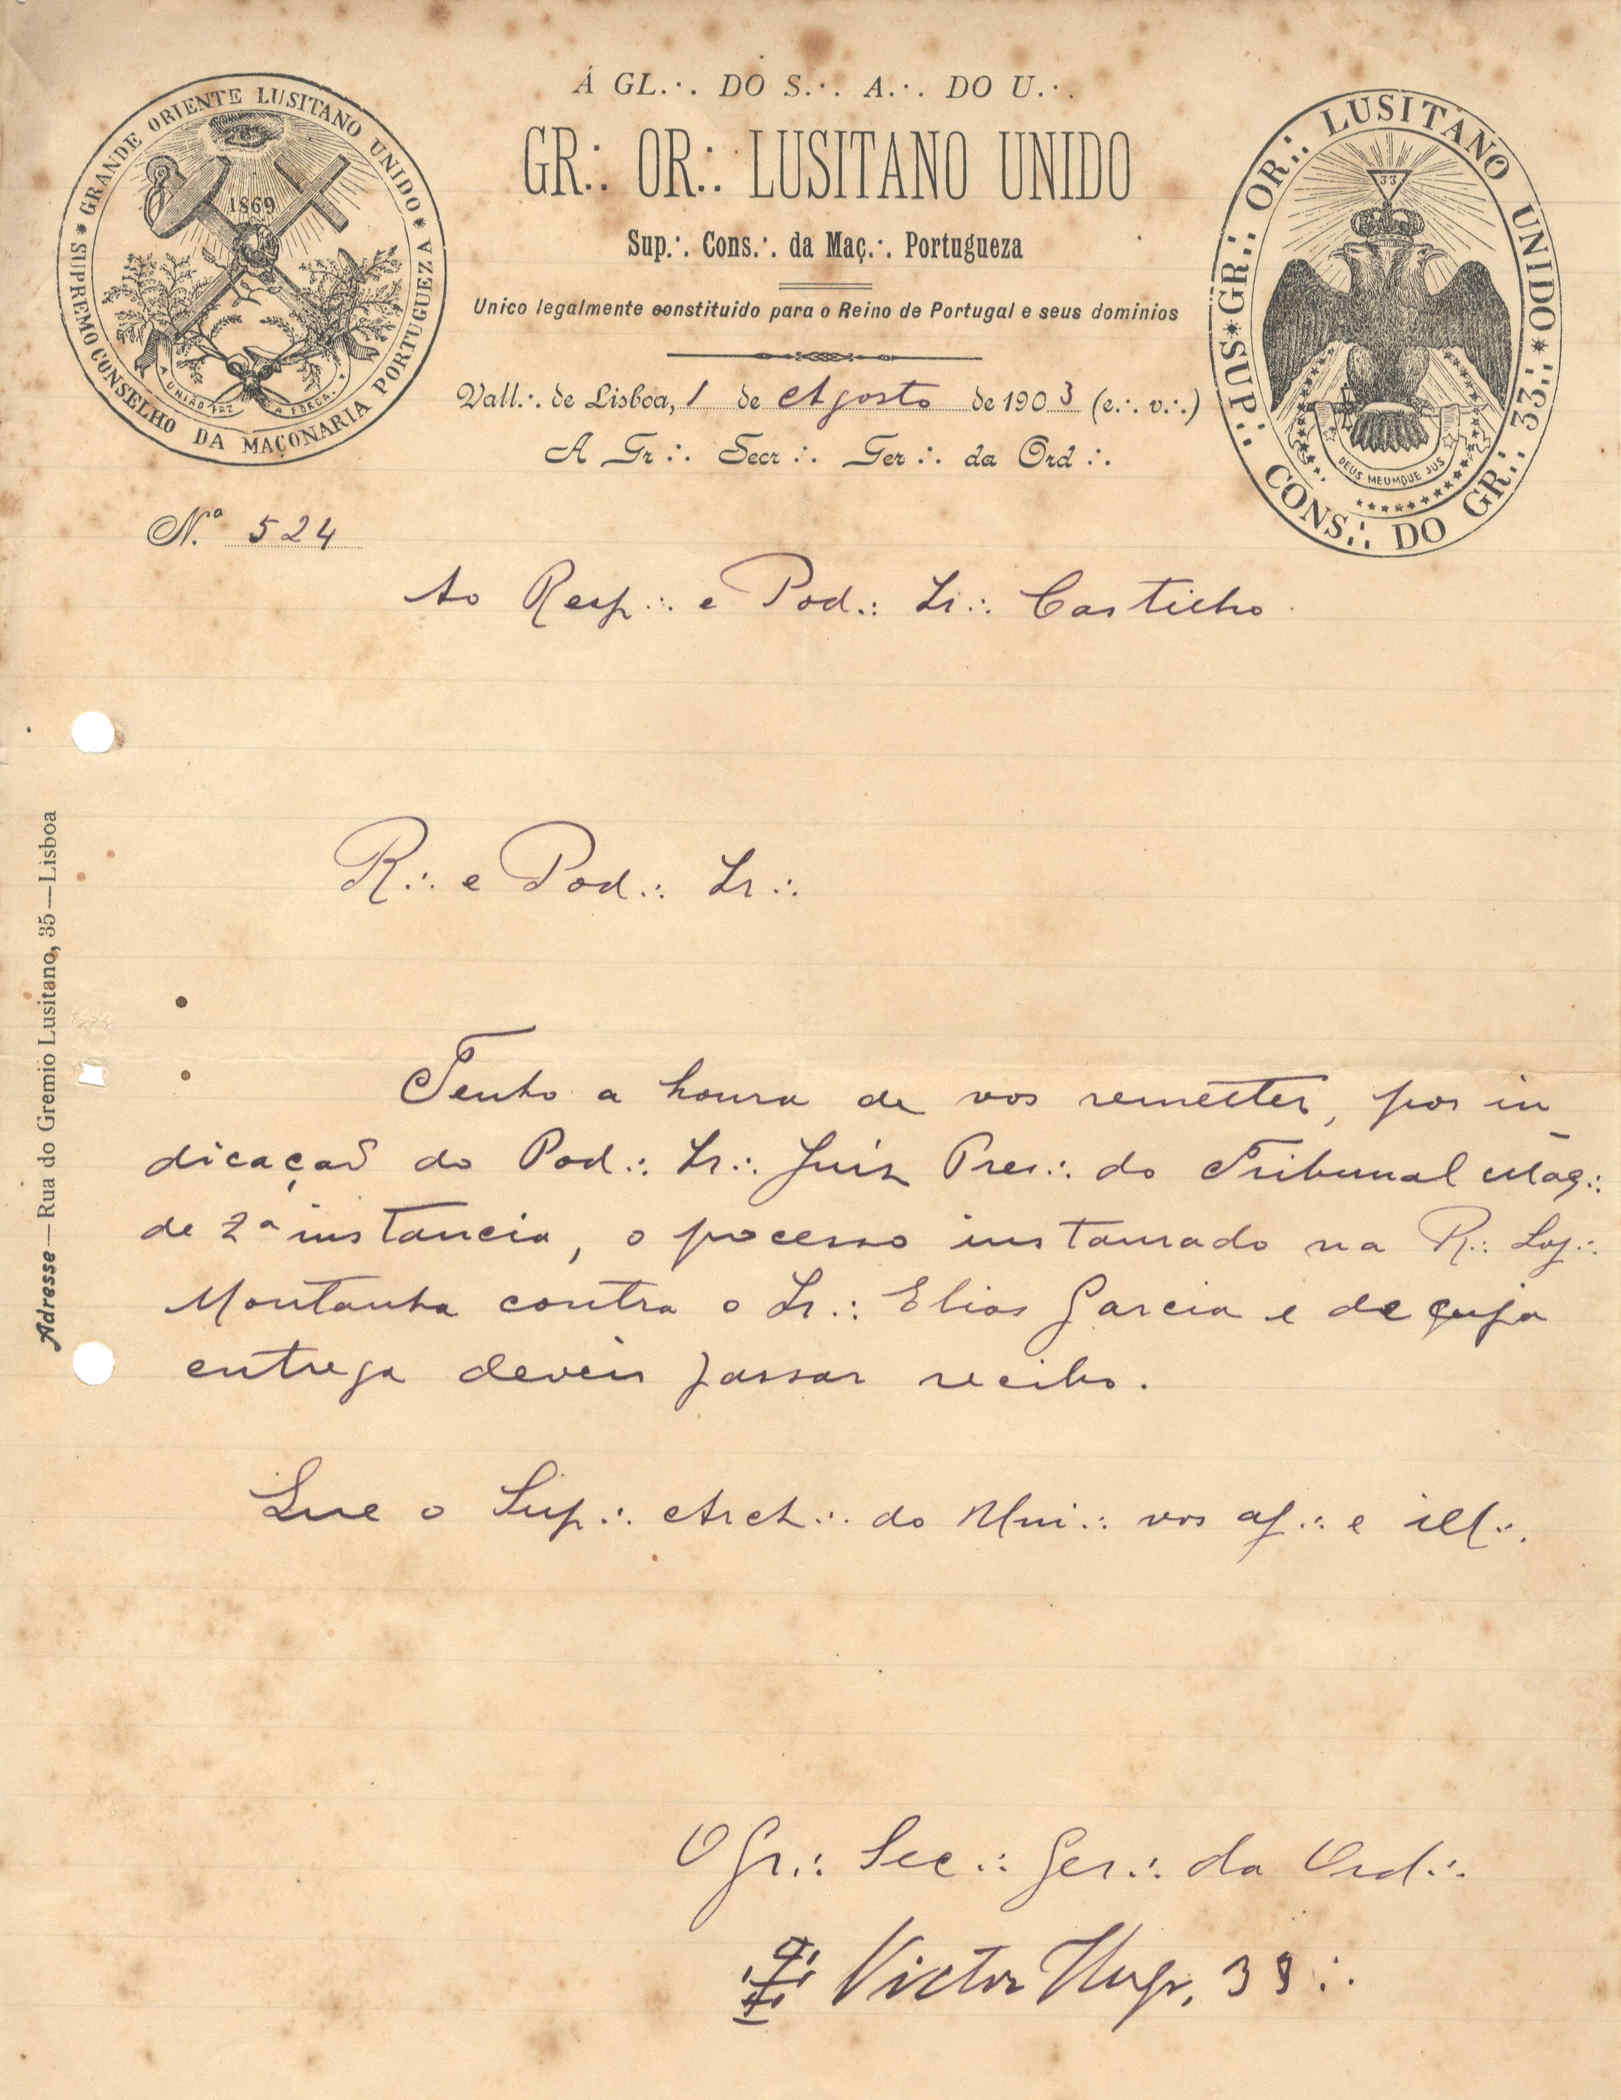 Á GL.·. DO S.·. A.·. DO U.·.
GR.·. OR.·. LUSITANO UNIDO
Sup.·. Cons.·. da Maç.·. Portugueza
Unico legalmente constituido para o Reino de Portugal e seus dominios
Vall.·. de Lisboa, 1 de Agosto de 1903 (e.·. v.·.)
A Gr.·. Secr.·. Ger.·. da Ord.·.
GRANDE ORIENTE LUSITANO UNIDO
SUPREMO CONSELHO DA MAÇONARIA PORTUGUEZA
1869
A UNIÃO FAZ A FORÇA
SUP.·. CONS.·. DO GR.·. 33.·.
GR.·. OR.·. LUSITANO UNIDO
33
DEUS MEUMQUE JUS
N.º 524
Ao Resp.·. e Pod.·. Ir.·. Castilho
R.·. e Pod.·. Ir.·.
Tenho a honra de vos remetter, por in
dicação do Pod.·. Ir.·. Juiz Pres.·. do Tribunal Maç.·.
de 2ª instancia, o pocesso instaurado na R.·. Loj.·.
Montanha contra o Ir.·. Elias Garcia e de cuja
entrega deveis passar recibo.
Que o Sup.·. Arch.·. do Uni.·. vos aj.·. e ill.·.
O Gr.·. Sec.·. Ger.·. da Ord.·.
Victor Hugo, 33.·.
Adresse—Rua do Gremio Lusitano, 35—Lisboa